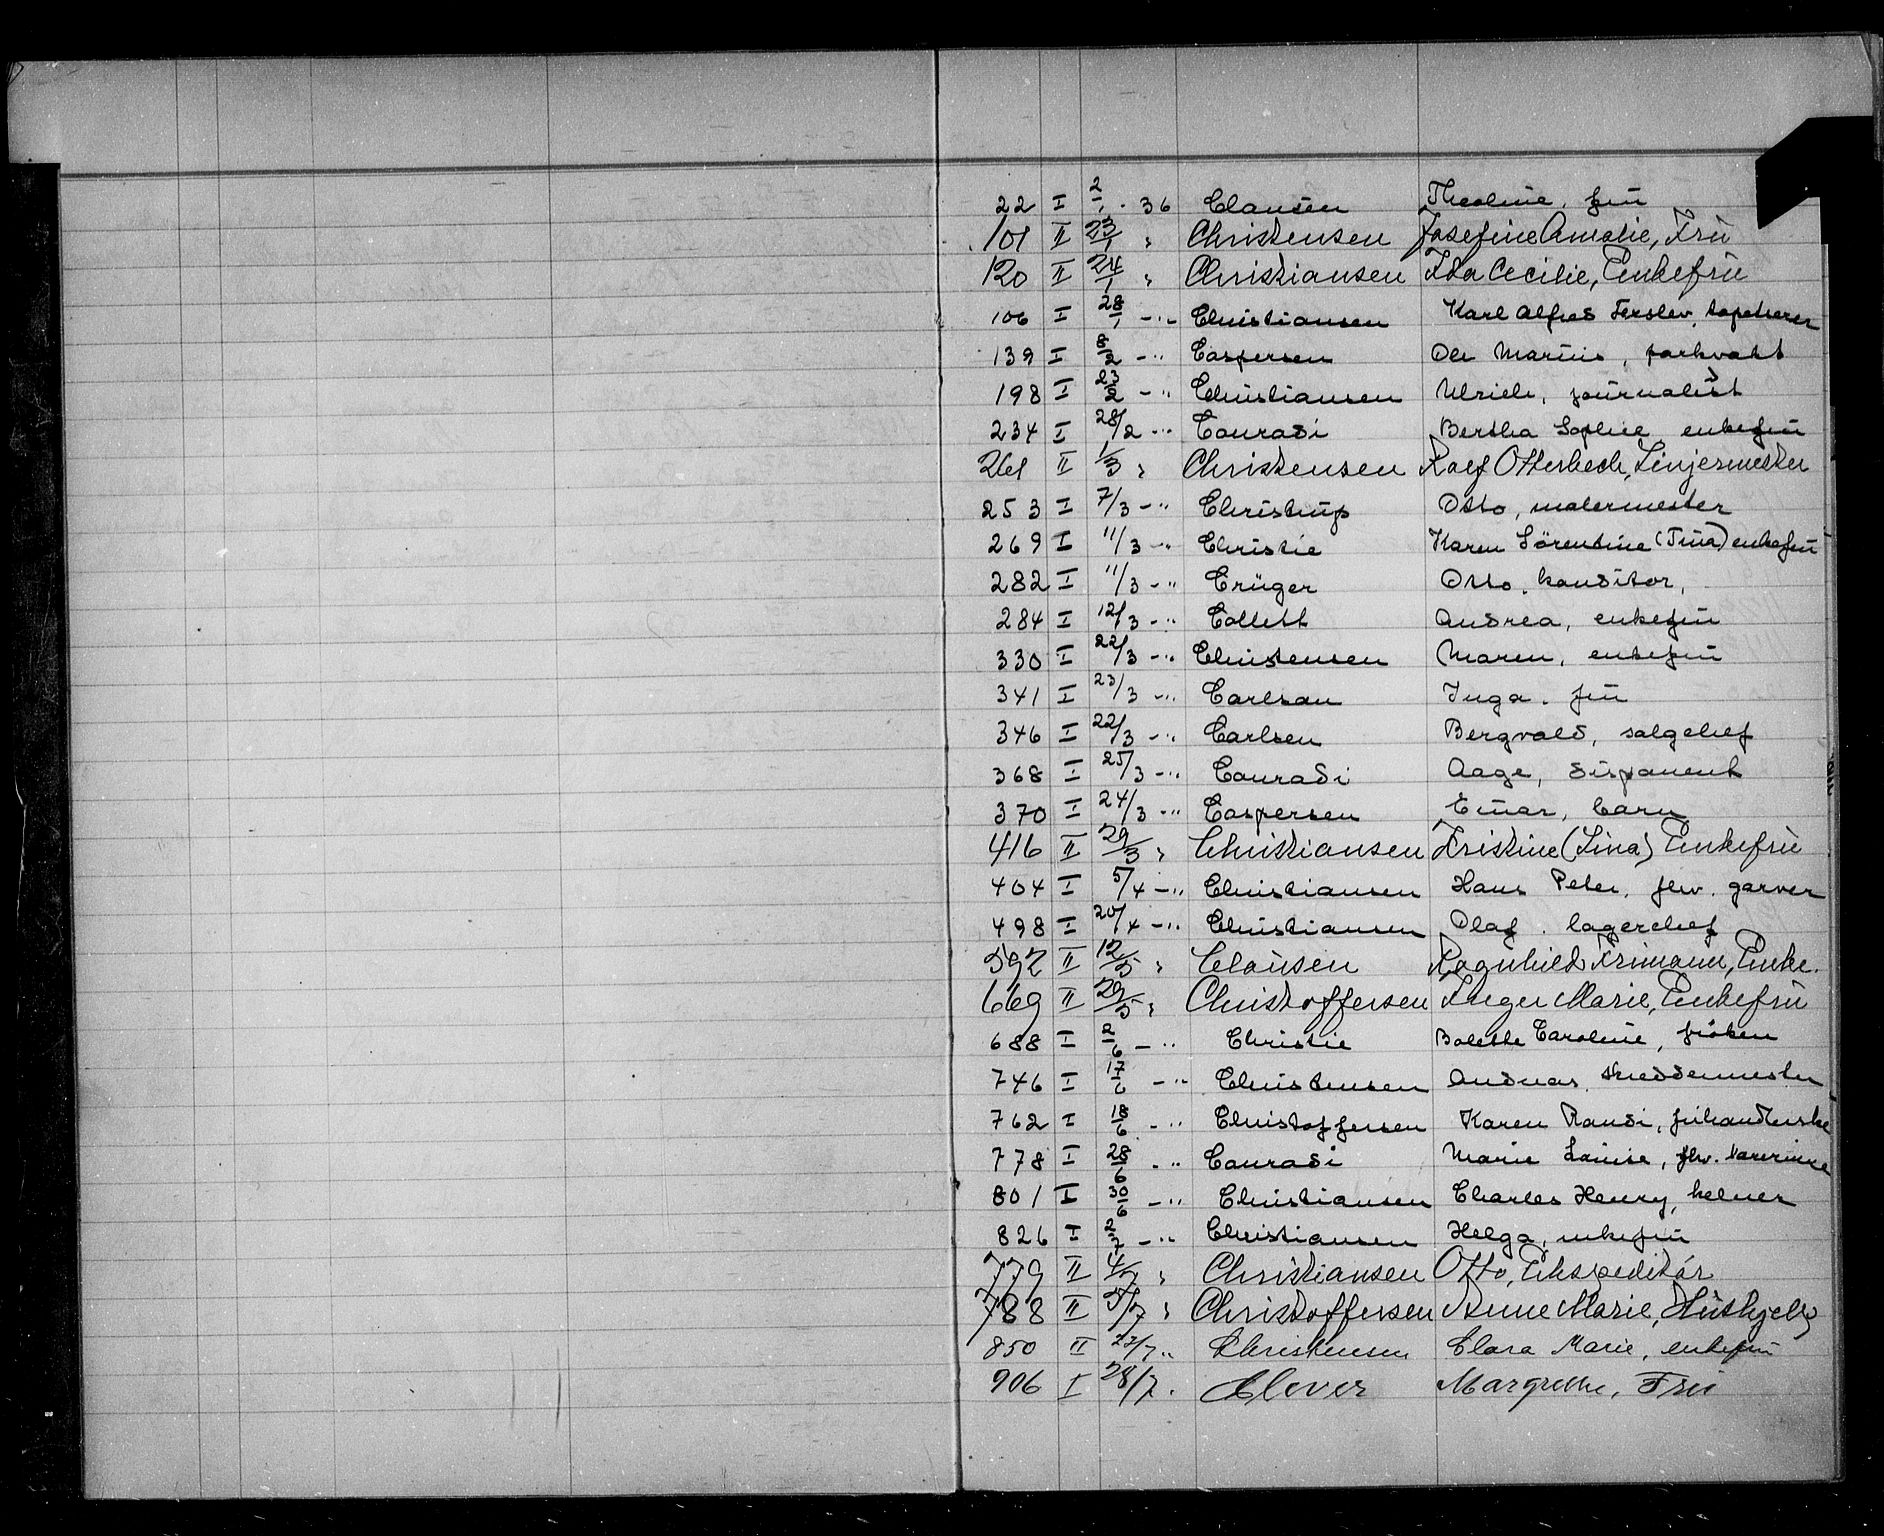 22 I 2/1 . 36 Clausen Theoline, frü
101 II 23/1 " Christensen Josefine Amalie, Frü
120 II 24/1 " Christiansen Ida Cecilie, Enkefrü
106 I 28/1 - " - Christiansen Karl Alfred Terslev, tapetserer
139 I 8/2 - " Caspersen Ole Marius, parkvakt
198 I 23/2 - " Christiansen Ulrich, journalist
234 I 28/2 - " Conradi Bertha Sophie enkefrü
261 II 1/3 " Christensen Rolf Otterbech, Linjemester
253 I 7/3 - " Christrup Otto, malermester
269 I 11/3 - " Christie Karen Sörentine (Tina) enkefrü
282 I 11/3 - " Crüger Otto, konditor,
284 I 12/3 - " Collett Andrea, enkefrü
330 I 22/3 - " Christensen Maren, enkefrü
341 I 23/3 - " Carlson Inga. frü
346 I 22/3 - " Carlsen Bergvald, salgchef
368 I 25/3 - " Conradi Aage, disponent
370 I 24/3 - " Caspersen Einar, barn
416 II 29/3 " Christiansen Kristine (Sina) Enkefrü
404 I 5/4 - " Christiansen Hans Peter, fhv. garver
498 I 20/4 - " Christiansen Olaf. lagerchef
592 II 12/5 " Clausen Ragnhild Krimann, Enke.
669 II 29/5 " Christoffersen Inger Marie, Enkefrü
688 I 2/6 - " Christie Bolette Caroline, fröken
746 I 17/6 - " Christensen Andreas, skreddermester
762 I 18/6 - " Christoffersen Karen Randi, frühandlerske
778 I 28/6 - " Conradi Marie Louise, fhv. lærerinne
801 I 30/6 - " Christiansen Charles Henry, kelner
826 I 2/7 - " Christiansen Helga, enkefrü
779 II 4/7 " Christiansen Otto, Ekspeditör
788 II 5/7 " Christoffersen Anne Marie, Hüshjelp
850 II 22/7 " Christensen Clara Marie, enkefrü
906 I 28/7 . Clever Margrethe, Frü